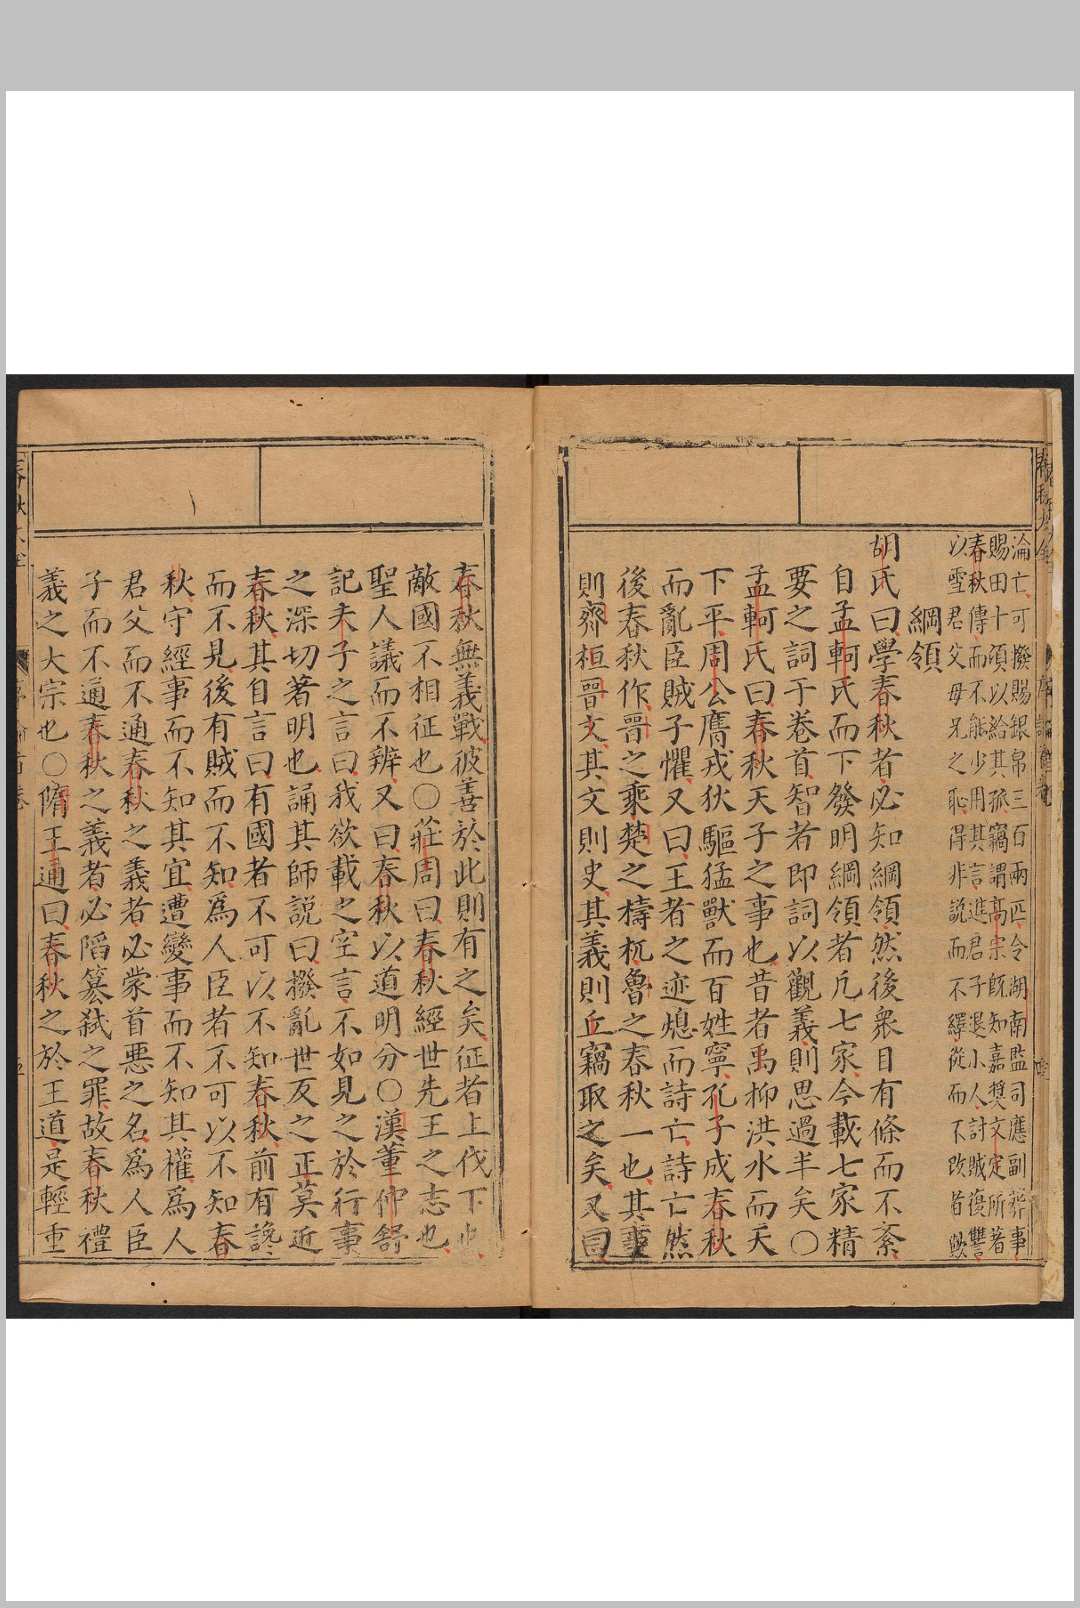 淪亡可撥賜銀帛三百兩匹令湖南監司應副葬事
賜田十頃以給其孤竊謂高宗既知嘉獎文定所著
春秋傳而不能少用其言進君子退小人討賊復讐
以雪君父母兄之恥得非說而不繹從而不改者歟
綱領
胡氏曰學春秋者必知綱領然後衆目有條而不紊
自孟軻氏而下發明綱領者凡七家今載七家精
要之詞于卷首智者即詞以觀義則思過半矣〇
孟軻氏曰春秋天子之事也昔者禹抑洪水而天
下平周公膺戎狄驅猛獸而百姓寧孔子成春秋
而亂臣賊子懼又曰王者之迹熄而詩亡詩亡然
後春秋作晉之乘楚之檮杌魯之春秋一也其事
則齊桓晉文其文則史其義則丘竊取之矣又曰
春秋無義戰彼善於此則有之矣征者上伐下也
敵國不相征也〇莊周曰春秋經世先王之志也
聖人議而不辨又曰春秋以道明分〇漢董仲舒
記夫子之言曰我欲載之空言不如見之於行事
之深切著明也誦其師說曰撥亂世反之正莫近
春秋其自言曰有國者不可以不知春秋前有讒
而不見後有賊而不知爲人臣者不可以不知春
秋守經事而不知其宜遭變事而不知其權爲人
君父而不通春秋之義者必蒙首惡之名爲人臣
子而不通春秋之義者必陷簒弑之罪故春秋禮
義之大宗也〇隋王通曰春秋之於王道是輕重